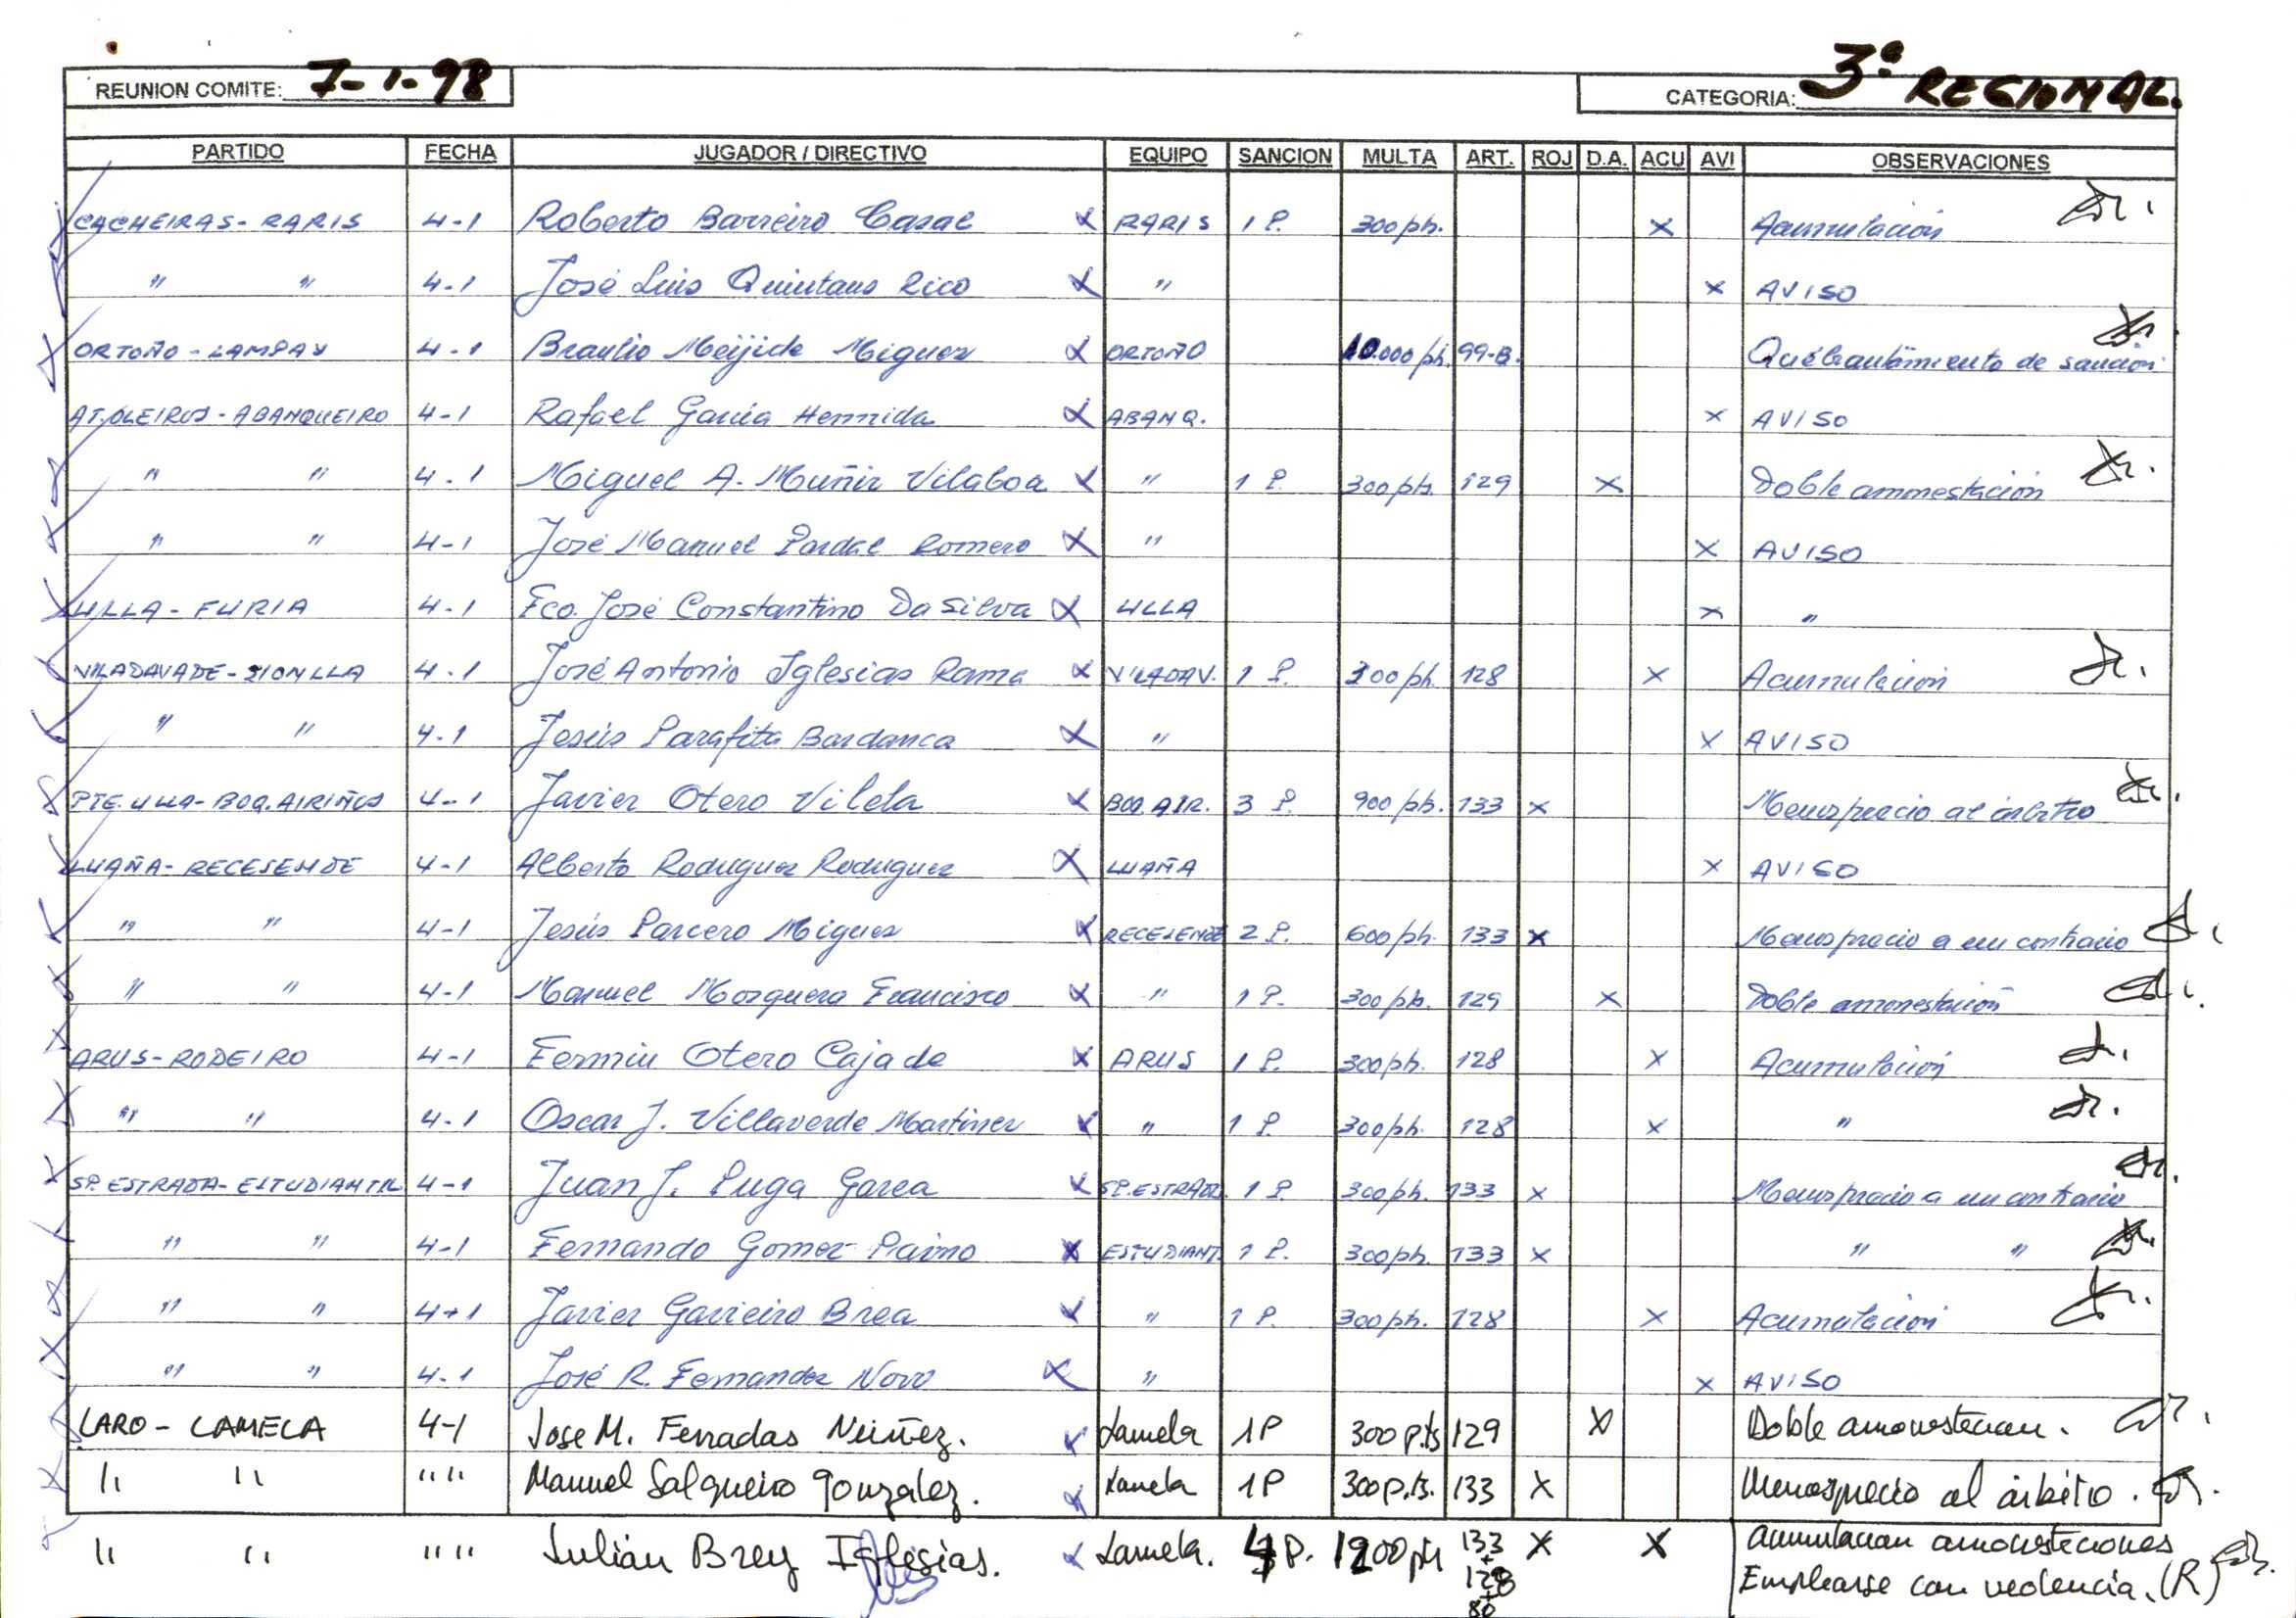 REUNION COMITE: 7-1-98 CATEGORIA: 3ª REGIONAL.
PARTIDO FECHA JUGADOR / DIRECTIVO EQUIPO SANCION MULTA ART. ROJ D.A. ACU AVI OBSERVACIONES
CACHEIRAS - RARIS 4-1 Roberto Barreiro Casal x RARIS 1 P. 300 pts. x Acumulación
" " 4-1 José Luis Quintans Rico x " x AVISO
ORTOÑO - LAMPAY 4-1 Braulio Meijide Miguez x ORTOÑO 10.000 pts. 99-B. Quebrantamiento de sanción
AT. OLEIROS - ABANQUEIRO 4-1 Rafael García Hermida x ABANQ. x AVISO
" " 4-1 Miguel A. Muñiz Vilaboa x " 1 P. 300 pts. 129 x Doble ammestación
" " 4-1 José Manuel Pardal Romero x " x AVISO
ULLA - FURIA 4-1 Fco. José Constantino Da Silva x ULLA x "
VILADAVADE - SIONLLA 4-1 José Antonio Iglesias Rama x VILADAV. 1 P. 300 pts. 128 x Acumulación
" " 4-1 Jesús Parafita Bardanca x " x AVISO
PTE. ULLA - BOQ. AIRIÑOS 4-1 Javier Otero Vilela x BOQ. AIR. 3 P. 900 pts. 133 x Menosprecio al árbitro
LUAÑA - RECESENDE 4-1 Alberto Rodriguez Rodriguez x LUAÑA x AVISO
" " 4-1 Jesús Parcero Miguez x RECESENDE 2 P. 600 pts. 133 x Menosprecio a un contrario
" " 4-1 Manuel Mosquera Francisco x " 1 P. 300 pts. 129 x Doble amonestación
ARUS - RODEIRO 4-1 Fermin Otero Cajade x ARUS 1 P. 300 pts. 128 x Acumulación
" " 4-1 Oscar J. Villaverde Martinez x " 1 P. 300 pts. 128 x "
SP. ESTRADA - ESTUDIANTIL 4-1 Juan J. Puga Garea x SP. ESTRADA 1 P. 300 pts. 133 x Menosprecio a un contrario
" " 4-1 Fernando Gomez x ESTUDIANT. 1 P. 300 pts. 133 x " "
" " 4-1 Javier Brea x " 1 P. 300 pts. 128 x Acumulación
" " 4-1 José R. Fernandez Novo x " x AVISO
LARO - LAMELA 4-1 Jose M. Ferradas Núñez. x Lamela 1P 300 pts 129 x Doble amonestacion.
" " " " Manuel Salgueiro Gonzalez. x Lamela 1P 300 pts. 133 x Menosprecio al árbitro.
" " " " Julián Brey Iglesias. x Lamela. 4 P. 1200 pts 133 x x Acumulacion amonestaciones
+
128 Emplearse con violencia. (R)
80